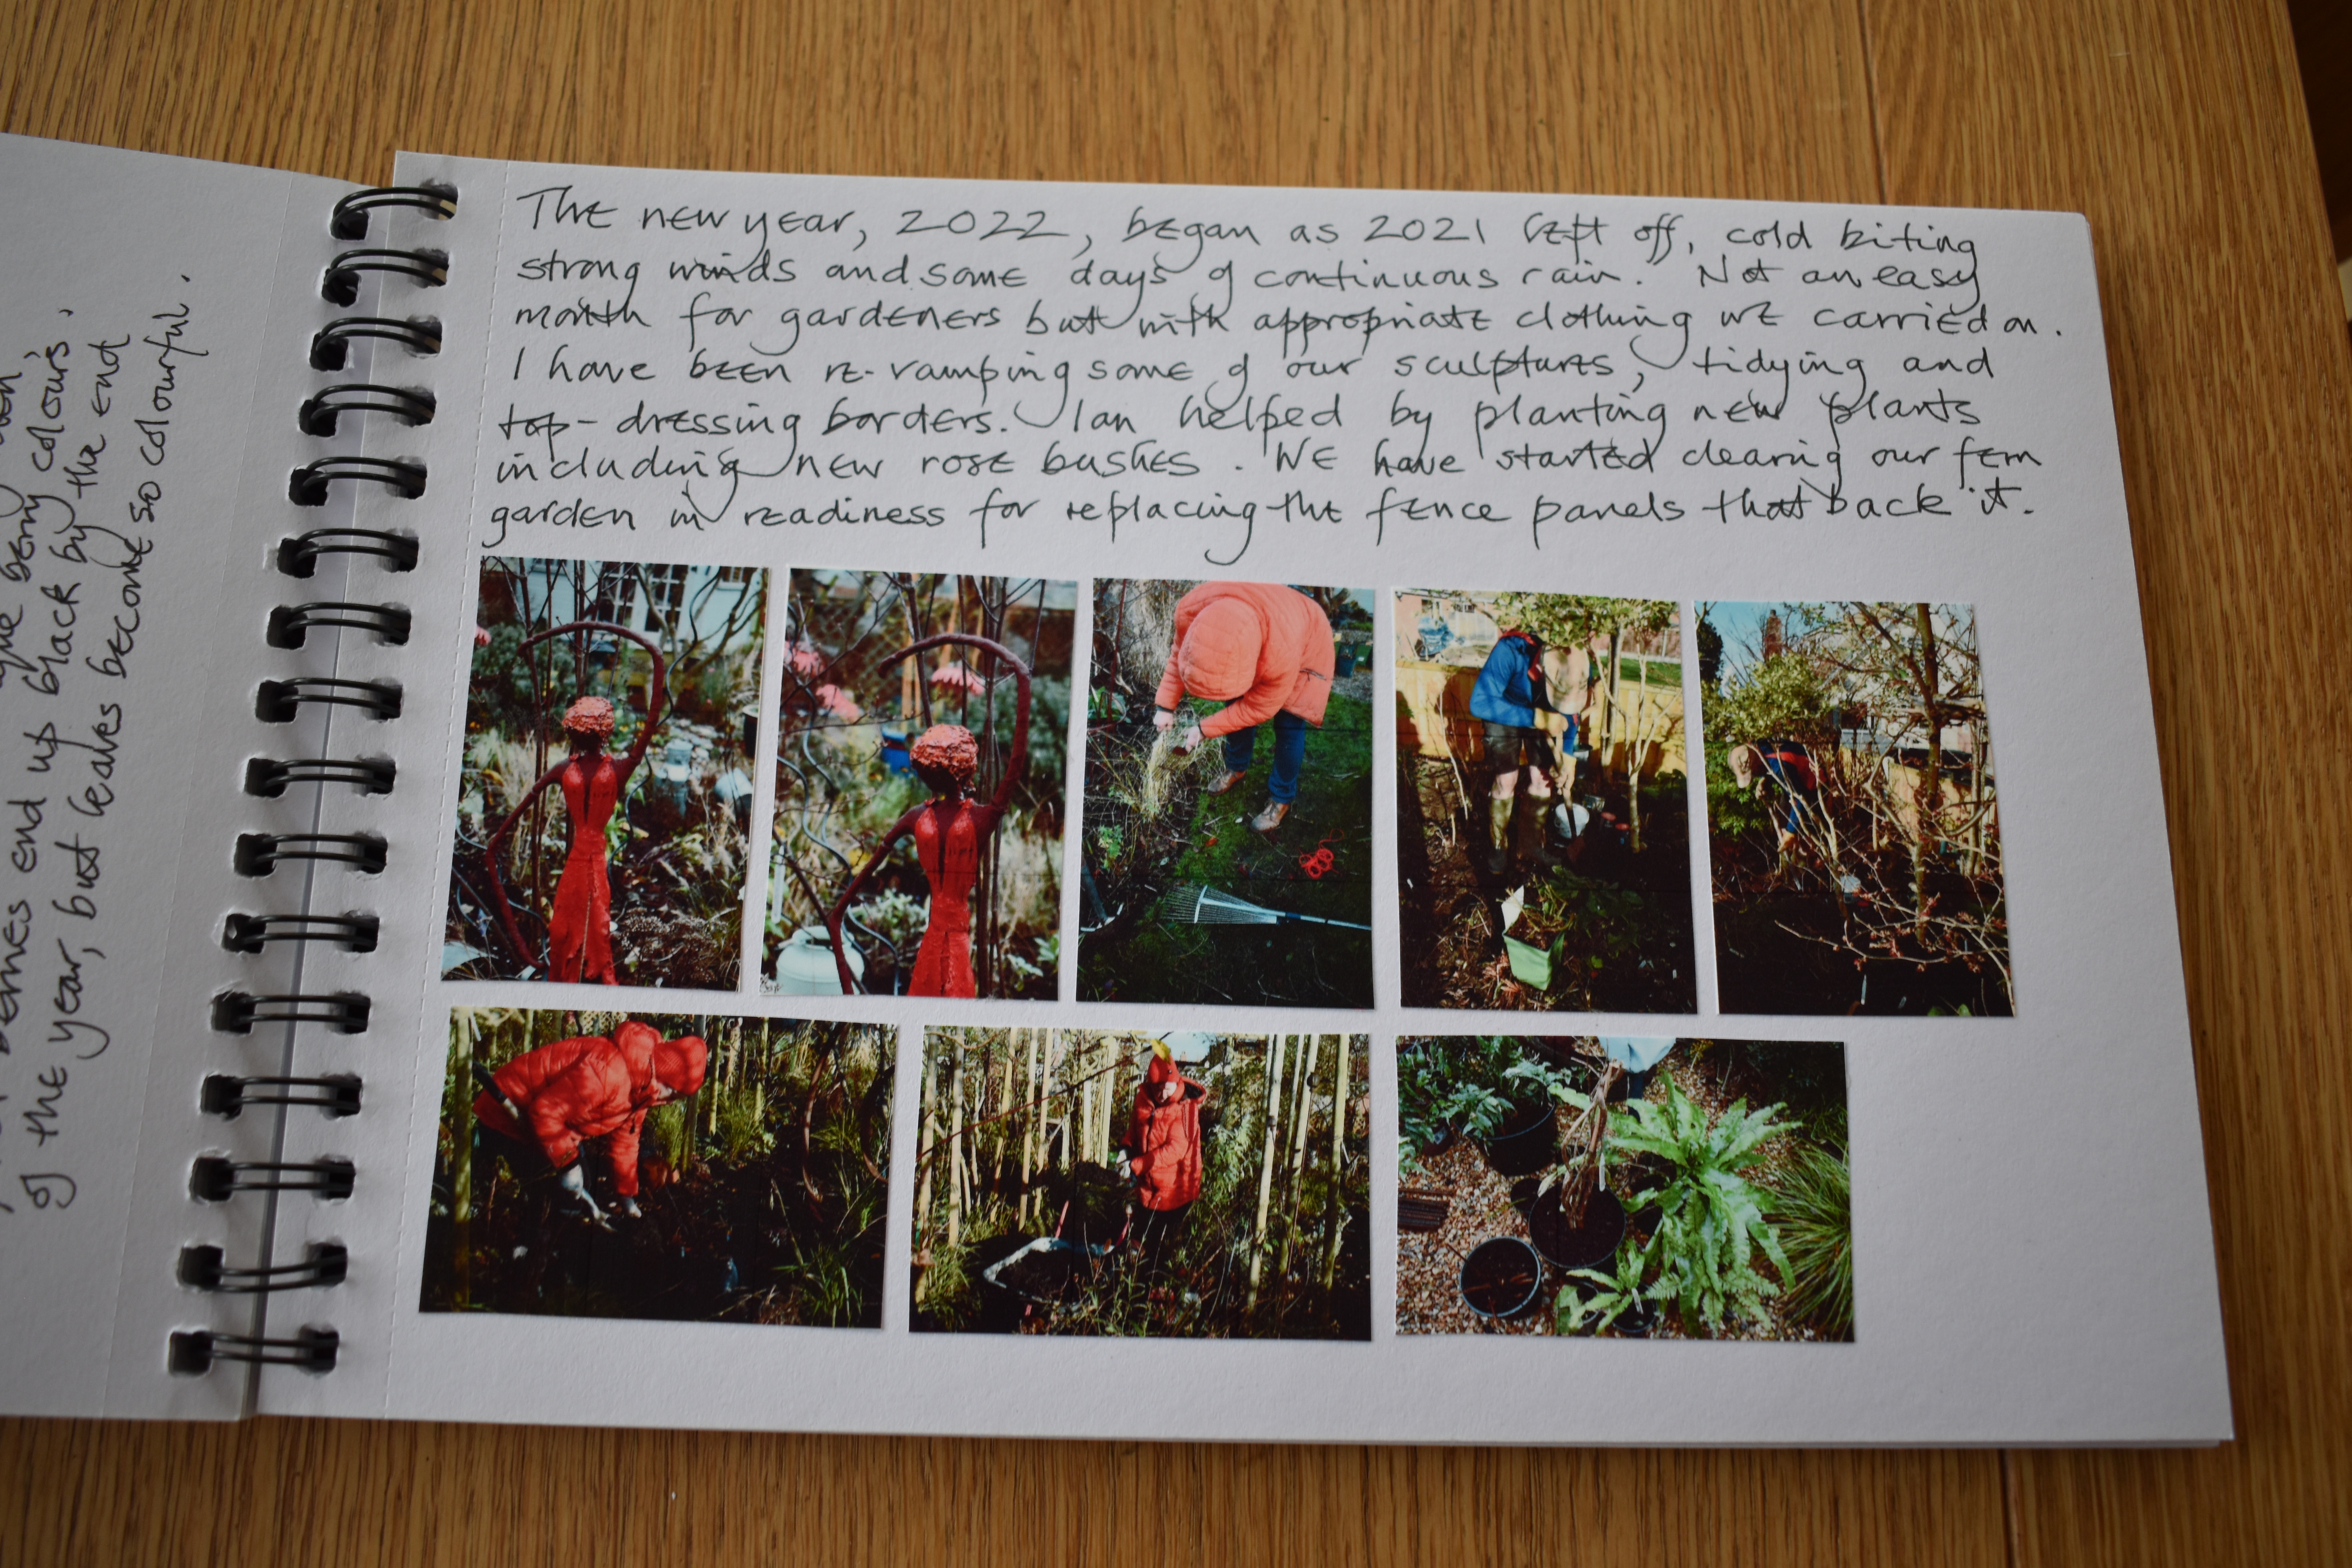 berries end up black by the end
of the year, but leaves become so colourful.
The new year, 2022, began as 2021 left off, cold biting
strong winds and some days of continuous rain. Not an easy
month for gardeners but with appropriate clothing we carried on.
I have been re-vamping some of our sculptures, tidying and
top-dressing borders. Ian helped by planting new plants
including new rose bushes. We have started clearing our fern
garden in readiness for replacing the fence panels that back it.